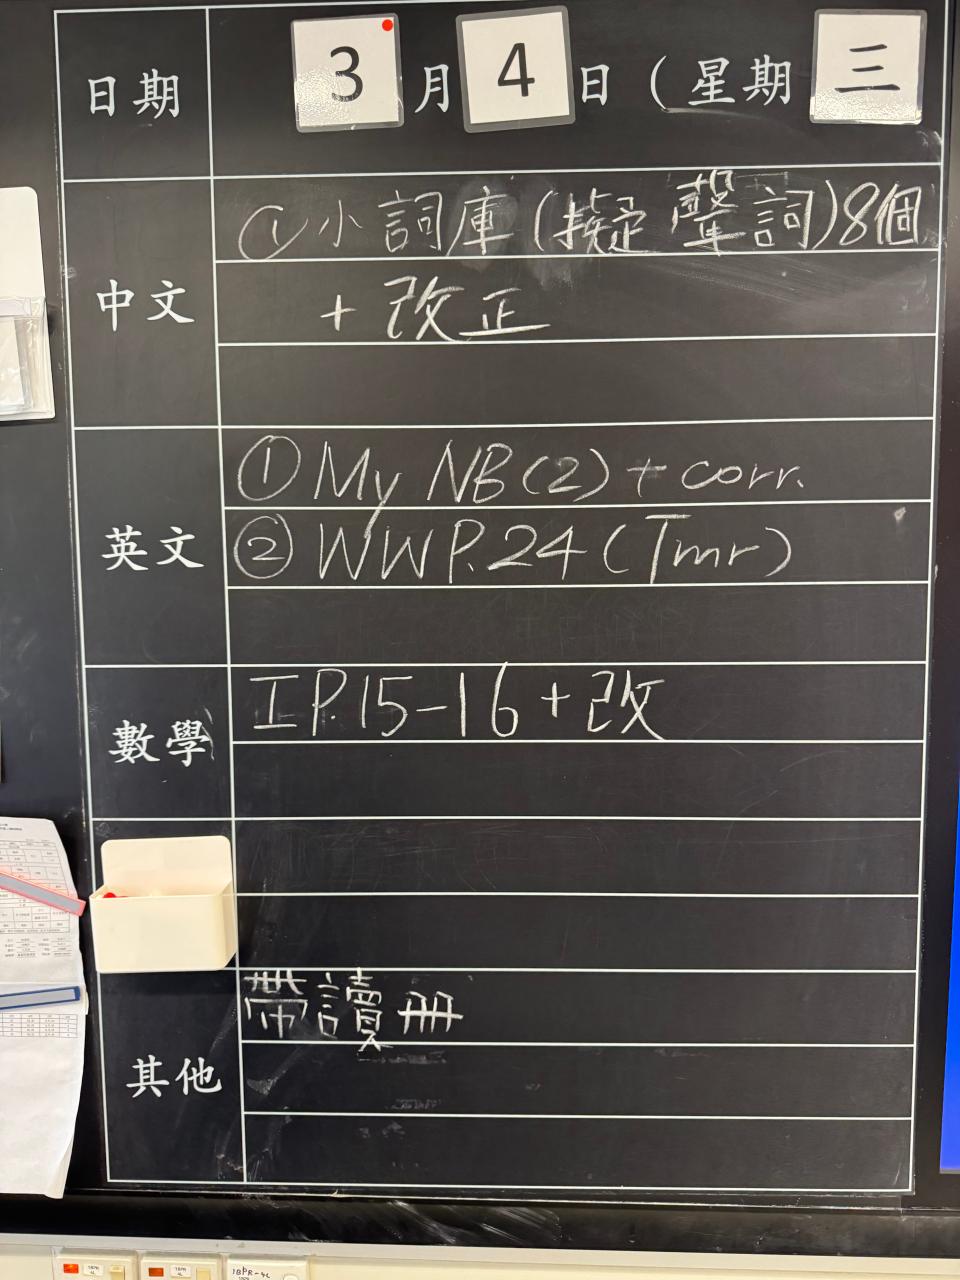 日期 3月4日（星期三
中文
①小詞庫(擬聲詞)8個
+改正
英文
① My NB(2) + corr.
② WWP.24 (Tmr)
數學
I P.15-16 + 改
其他
帶讀冊